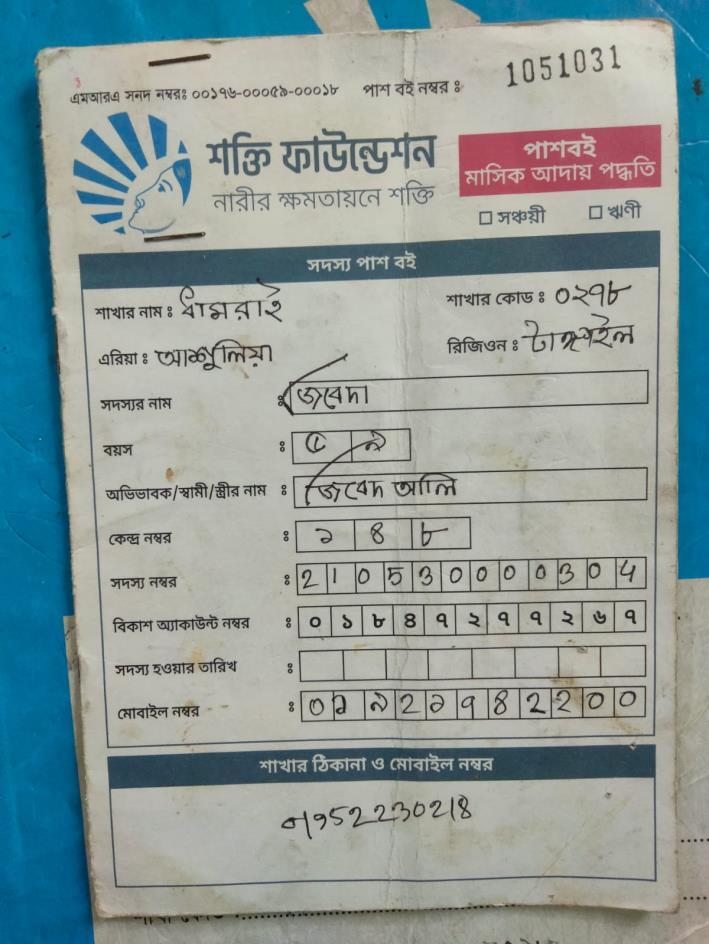 এমআরএ সনদ নম্বরঃ ০০১৭৬-০০০৫৯-০০০১৮ পাশ বই নম্বর ঃ 1051031
শক্তি ফাউন্ডেশন
নারীর ক্ষমতায়নে শক্তি
পাশবই
মাসিক আদায় পদ্ধতি
সঞ্চয়ী ঋণী
সদস্য পাশ বই
শাখার নাম ঃ ধামরাই শাখার কোড ঃ ০২৭৮
এরিয়া ঃ আশুলিয়া রিজিওন ঃ টাঙ্গাইল
সদস্যর নাম ঃ জবেদা
বয়স ঃ ৫৯
অভিভাবক/স্বামী/স্ত্রীর নাম ঃ জিবেদ আলি
কেন্দ্র নম্বর ঃ ১৪৮
সদস্য নম্বর ঃ
বিকাশ অ্যাকাউন্ট নম্বর ঃ ০১৮৪৭২৭৭২৬৭
সদস্য হওয়ার তারিখ ঃ
মোবাইল নম্বর ঃ
শাখার ঠিকানা ও মোবাইল নম্বর